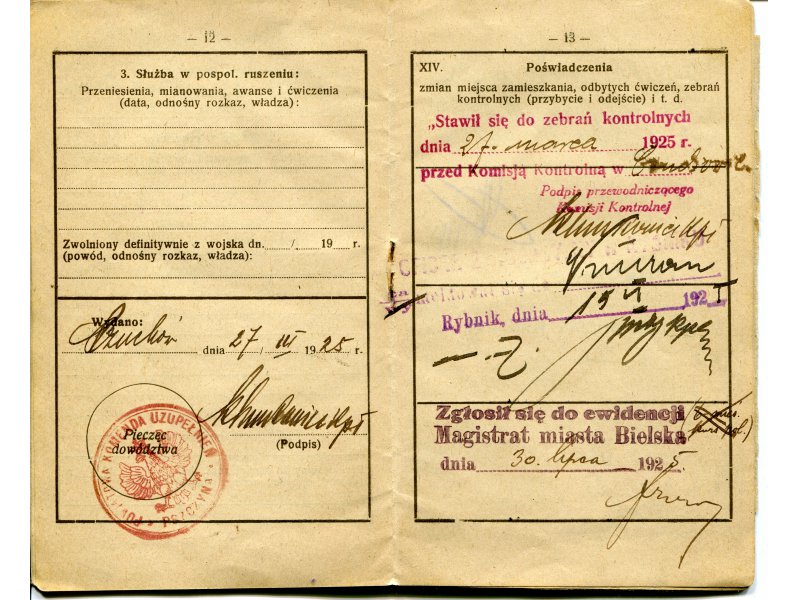 — 12 —
3. Służba w pospol. ruszeniu:
Przeniesienia, mianowania, awanse i ćwiczenia
(data, odnośny rozkaz, władza):
Zwolniony definitywnie z wojska dn. / 19 r.
(powód, odnośny rozkaz, władza):
Wydano:
dnia 27/III 1925 r.
(Podpis)
Pieczęć
dowództwa
KOMENDA UZUPEŁNIEŃ
— 13 —
XIV. Poświadczenia
zmian miejsca zamieszkania, odbytych ćwiczeń, zebrań
kontrolnych (przybycie i odejście) i t. d.
„Stawił się do zebrań kontrolnych
dnia 27. marca 1925 r.
przed Komisją Kontrolną w
Podpis przewodniczącego
Komisji Kontrolnej
Rybnik, dnia 15 VI 192
Zgłosił się do ewidencji
Magistrat miasta Bielska
dnia 30. lipca 1925.